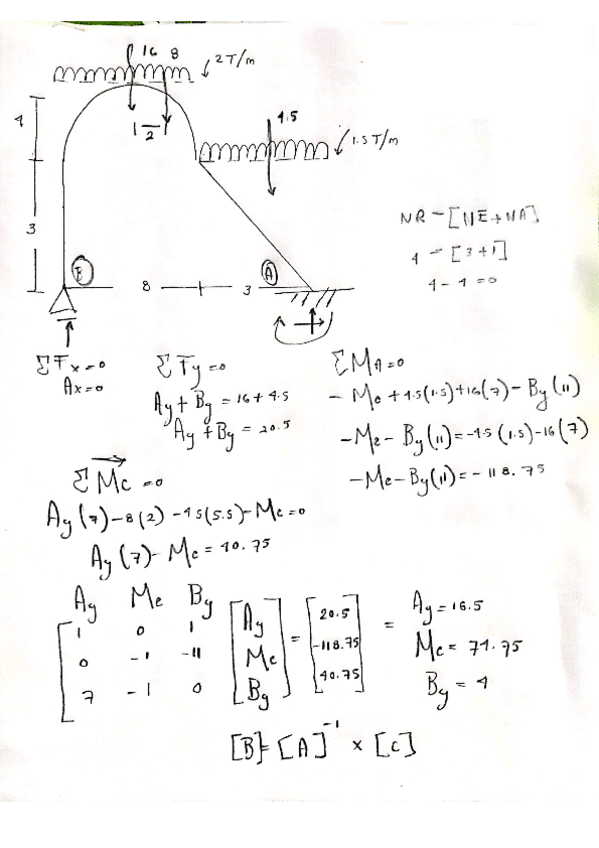 16 8
2 T/m
4
1 2
4.5
1.5 T/m
3
NR - [NE + NA]
4 - [3+1]
4 - 4 = 0
B
8
3
A
ΣFx = 0
Ax = 0
ΣFy = 0
Ay + By = 16 + 4.5
Ay + By = 20.5
ΣMA = 0
- Me + 4.5(1.5) + 16(7) - By(11)
- Me - By(11) = -4.5(1.5) - 16(7)
- Me - By(11) = - 118.75
ΣMc = 0
Ay(7) - 8(2) - 4.5(5.5) - Me = 0
Ay(7) - Me = 40.75
Ay Me By
1 0 1
0 -1 -11
7 -1 0
Ay
Me
By
=
20.5
-118.75
40.75
=
Ay = 16.5
Me = 74.75
By = 4
[B] = [A]⁻¹ × [C]